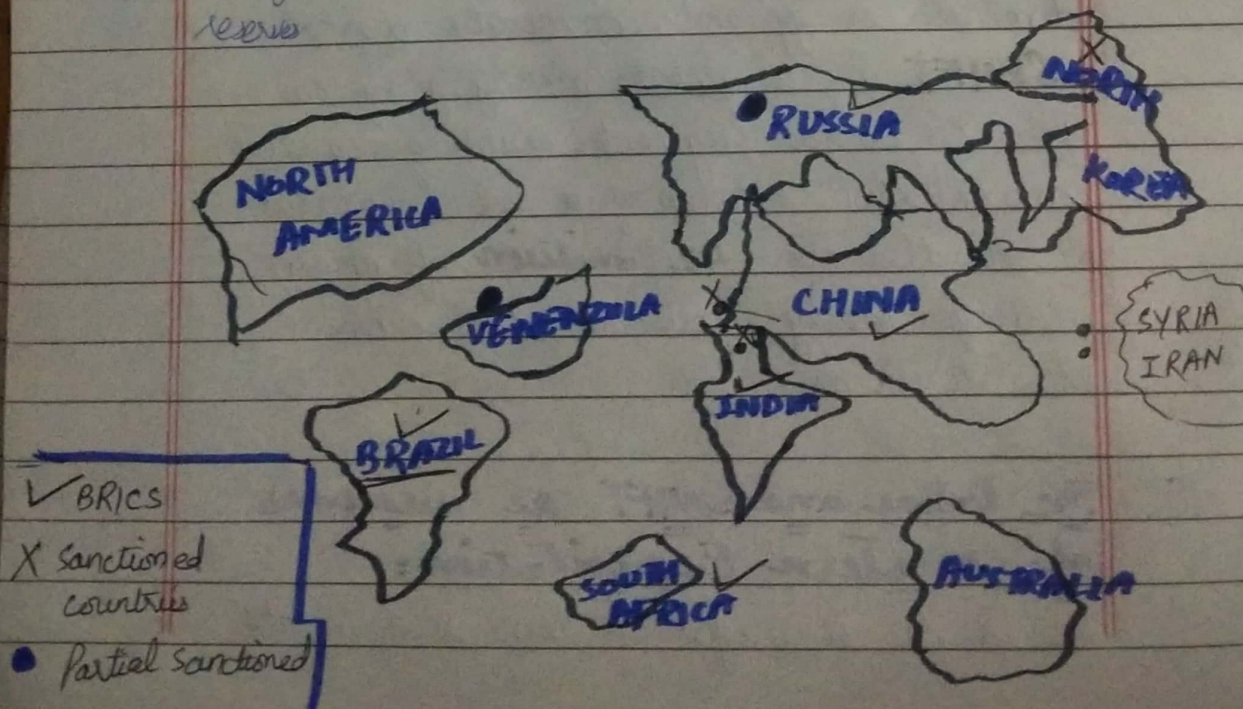 reserves
NORTH
AMERICA
RUSSIA
NORTH
KOREA
VENENZULA
CHINA
SYRIA
IRAN
INDIA
BRAZIL
SOUTH
AFRICA
AUSTRALIA
✓ BRICS
X Sanctioned
countries
● Partial Sanctioned